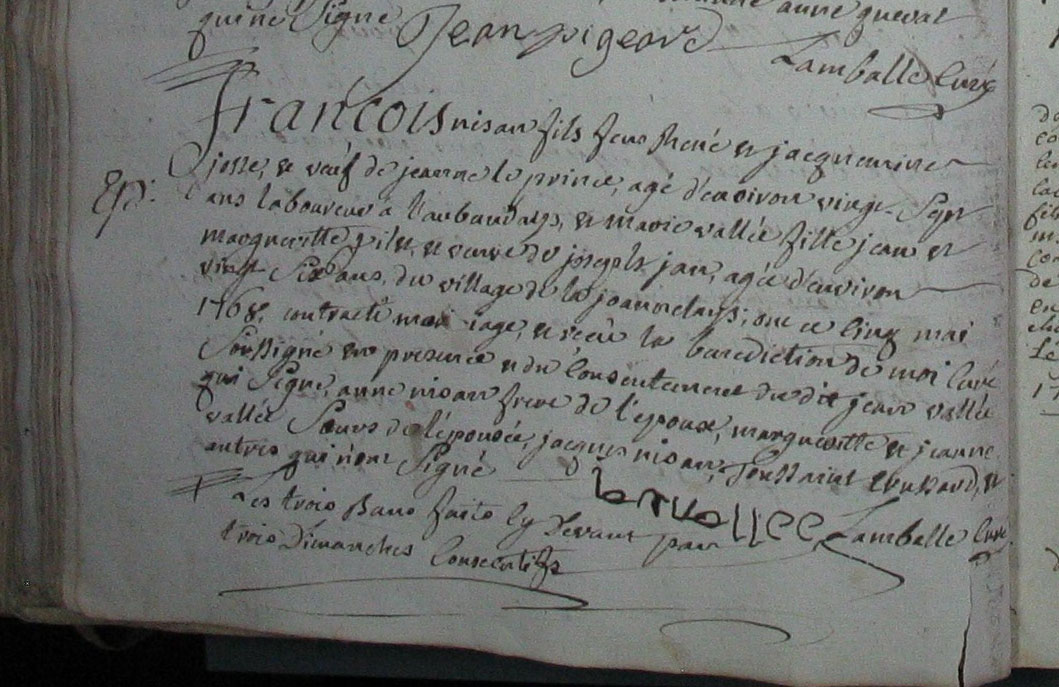 anne gueval
qui ne Signe Jean pigeard
Lamballe Curé
Francois nisan fils feus René et jacquemine
josse, et vœuf de jeanne le prince, agé d'environ vingt-Sept
Ep:
ans laboureur à et marie vallée fille jean et
margueritte et veuve de joseph jan, agée d'environ
vingt Six ans, du village de la ont ce cinq mai
1768, contracté mariage, et recu la benediction de moi Curé
Soussigné en presence et du consentement du dit jean vallée
qui Signe, anne nisan frere de l'epoux, margueritte et jeanne
vallée Sœurs de l'épousée, jacques nisan, Toussaint et
autres qui n'ont Signé
vallee Lamballe Curé
Les trois Bans faits cy devant par
trois Dimanches Consecutifs